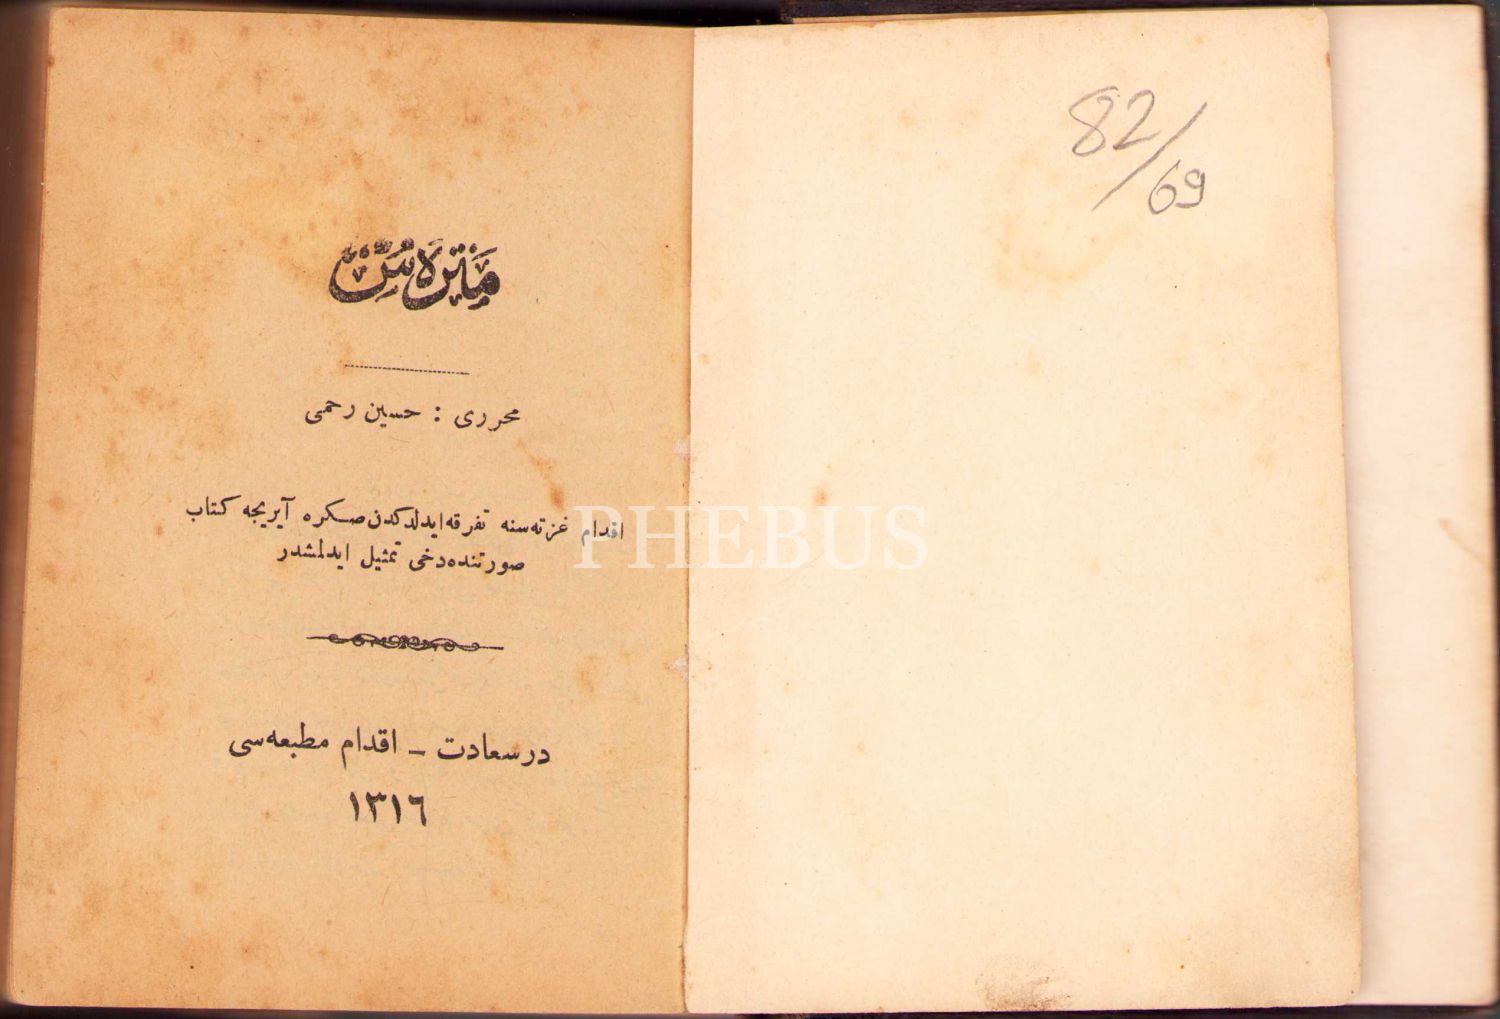 مَتَرَه‌سْ
محرری : حسین رحمی
اقدام غزته‌سنه تفرقه ایدلدکدن صکره آیریجه کتاب
صورتنده دخی تمثیل ایدلمشدر
درسعادت – اقدام مطبعه‌سی
١٣١٦
82/69
PHEBUS